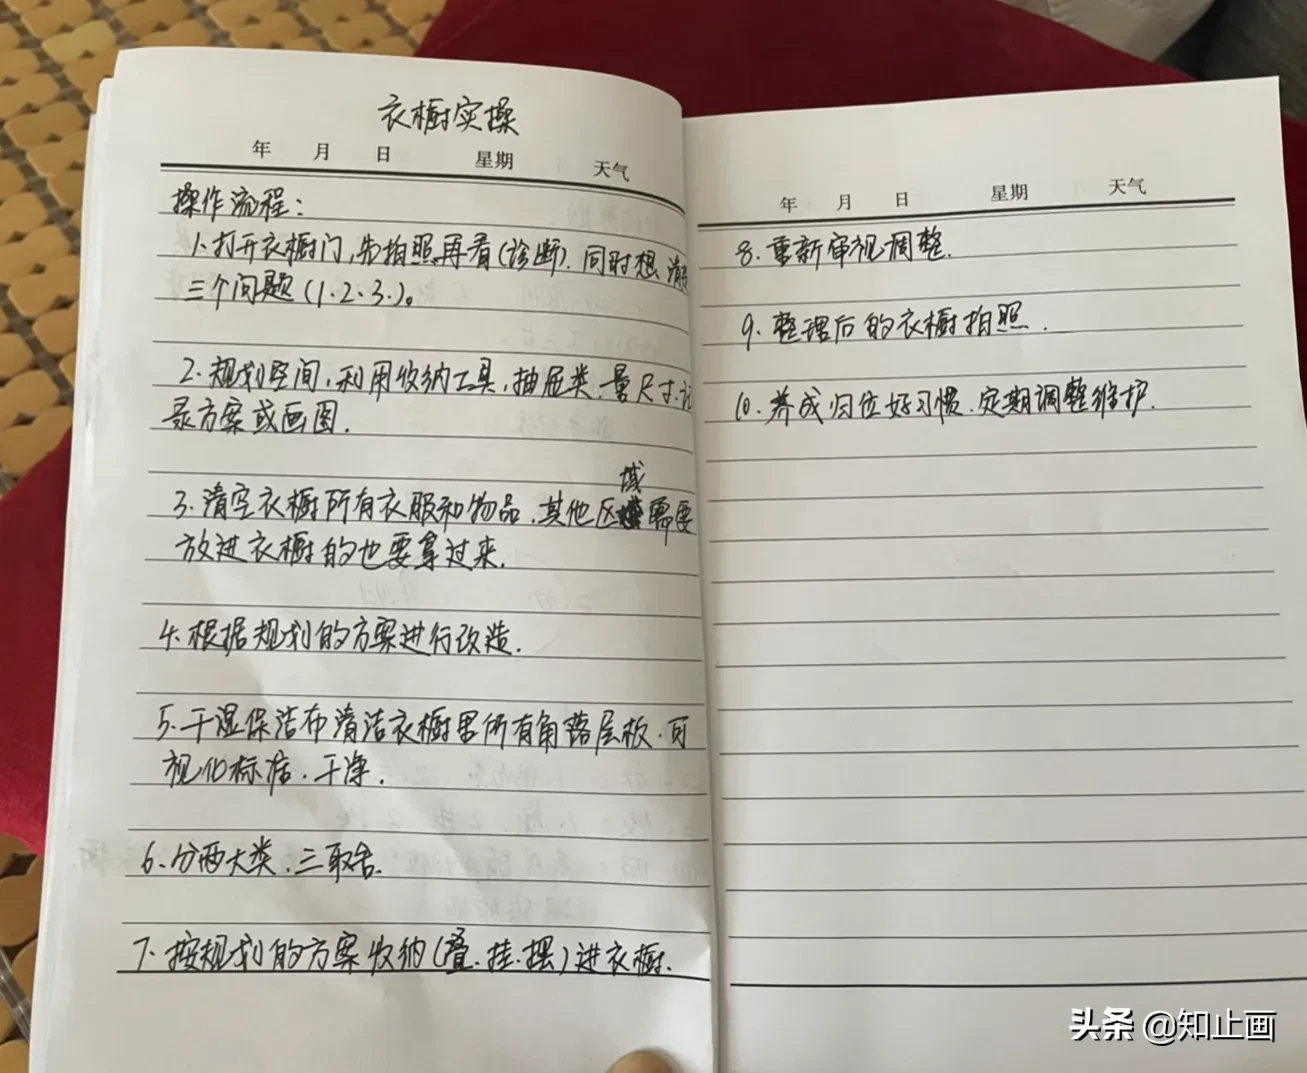 衣橱实操
年 月 日 星期 天气
操作流程：
1、打开衣橱门，先拍照再看(诊断)。同时想清
三个问题(1.2.3.)。
2、规划空间，利用收纳工具，抽屉类、量尺寸、记
录方案或画图.
3、清空衣橱所有衣服和物品，其他区域需要
放进衣橱的也要拿过来.
4、根据规划的方案进行改造.
5、干湿保洁布清洁衣橱里所有角落层板.可
视化标准.干净.
6、分两大类、三取舍.
7、按规划的方案收纳(叠.挂.摆)进衣橱.
年 月 日 星期 天气
8.重新审视调整.
9.整理后的衣橱拍照.
10.养成归位好习惯.定期调整维护.
头条 @知止画